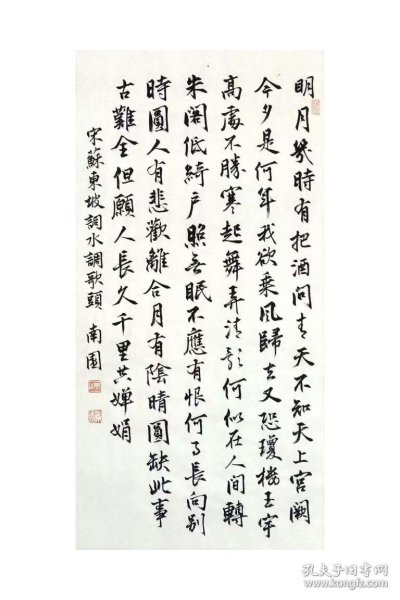 明月幾時有把酒問青天不知天上宮闕
今夕是何年我欲乘風歸去又恐瓊樓玉宇
高處不勝寒起舞弄清影何似在人間轉
朱閣低綺户照無眠不應有恨何事長向别
時圓人有悲歡離合月有陰晴圓缺此事
古難全但願人長久千里共嬋娟
宋蘇東坡詞水調歌頭 南園
孔夫子旧书网
www.kongfz.com